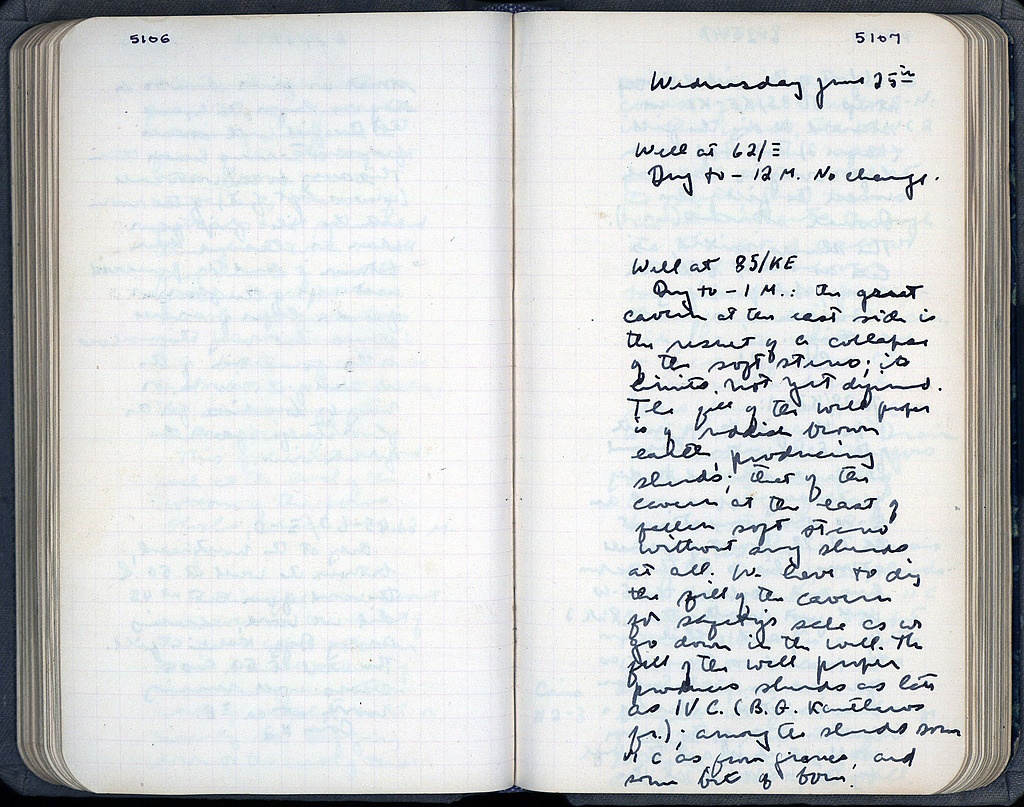 5106
5107
Wednesday June 25th
Well at 62/Ξ
Dug to -12 M. No change.
Well at 85/KE
Dug to -1 M.: the great
cavern at the east side is
the result of a collapse
of the soft stereo; its
limits not yet defined.
The fill of the well proper
is of reddish brown
earth, producing
sherds; that of the
cavern at the east of
fallen soft stereo
without any sherds
at all. We have to dig
the fill of the cavern
for safety's sake as we
go down in the well. The
fill of the well proper
produces sherds as late
as IV C. (B.G. Kantharos
fr.); among the sherds some
as from graves, and
some bits of bone.